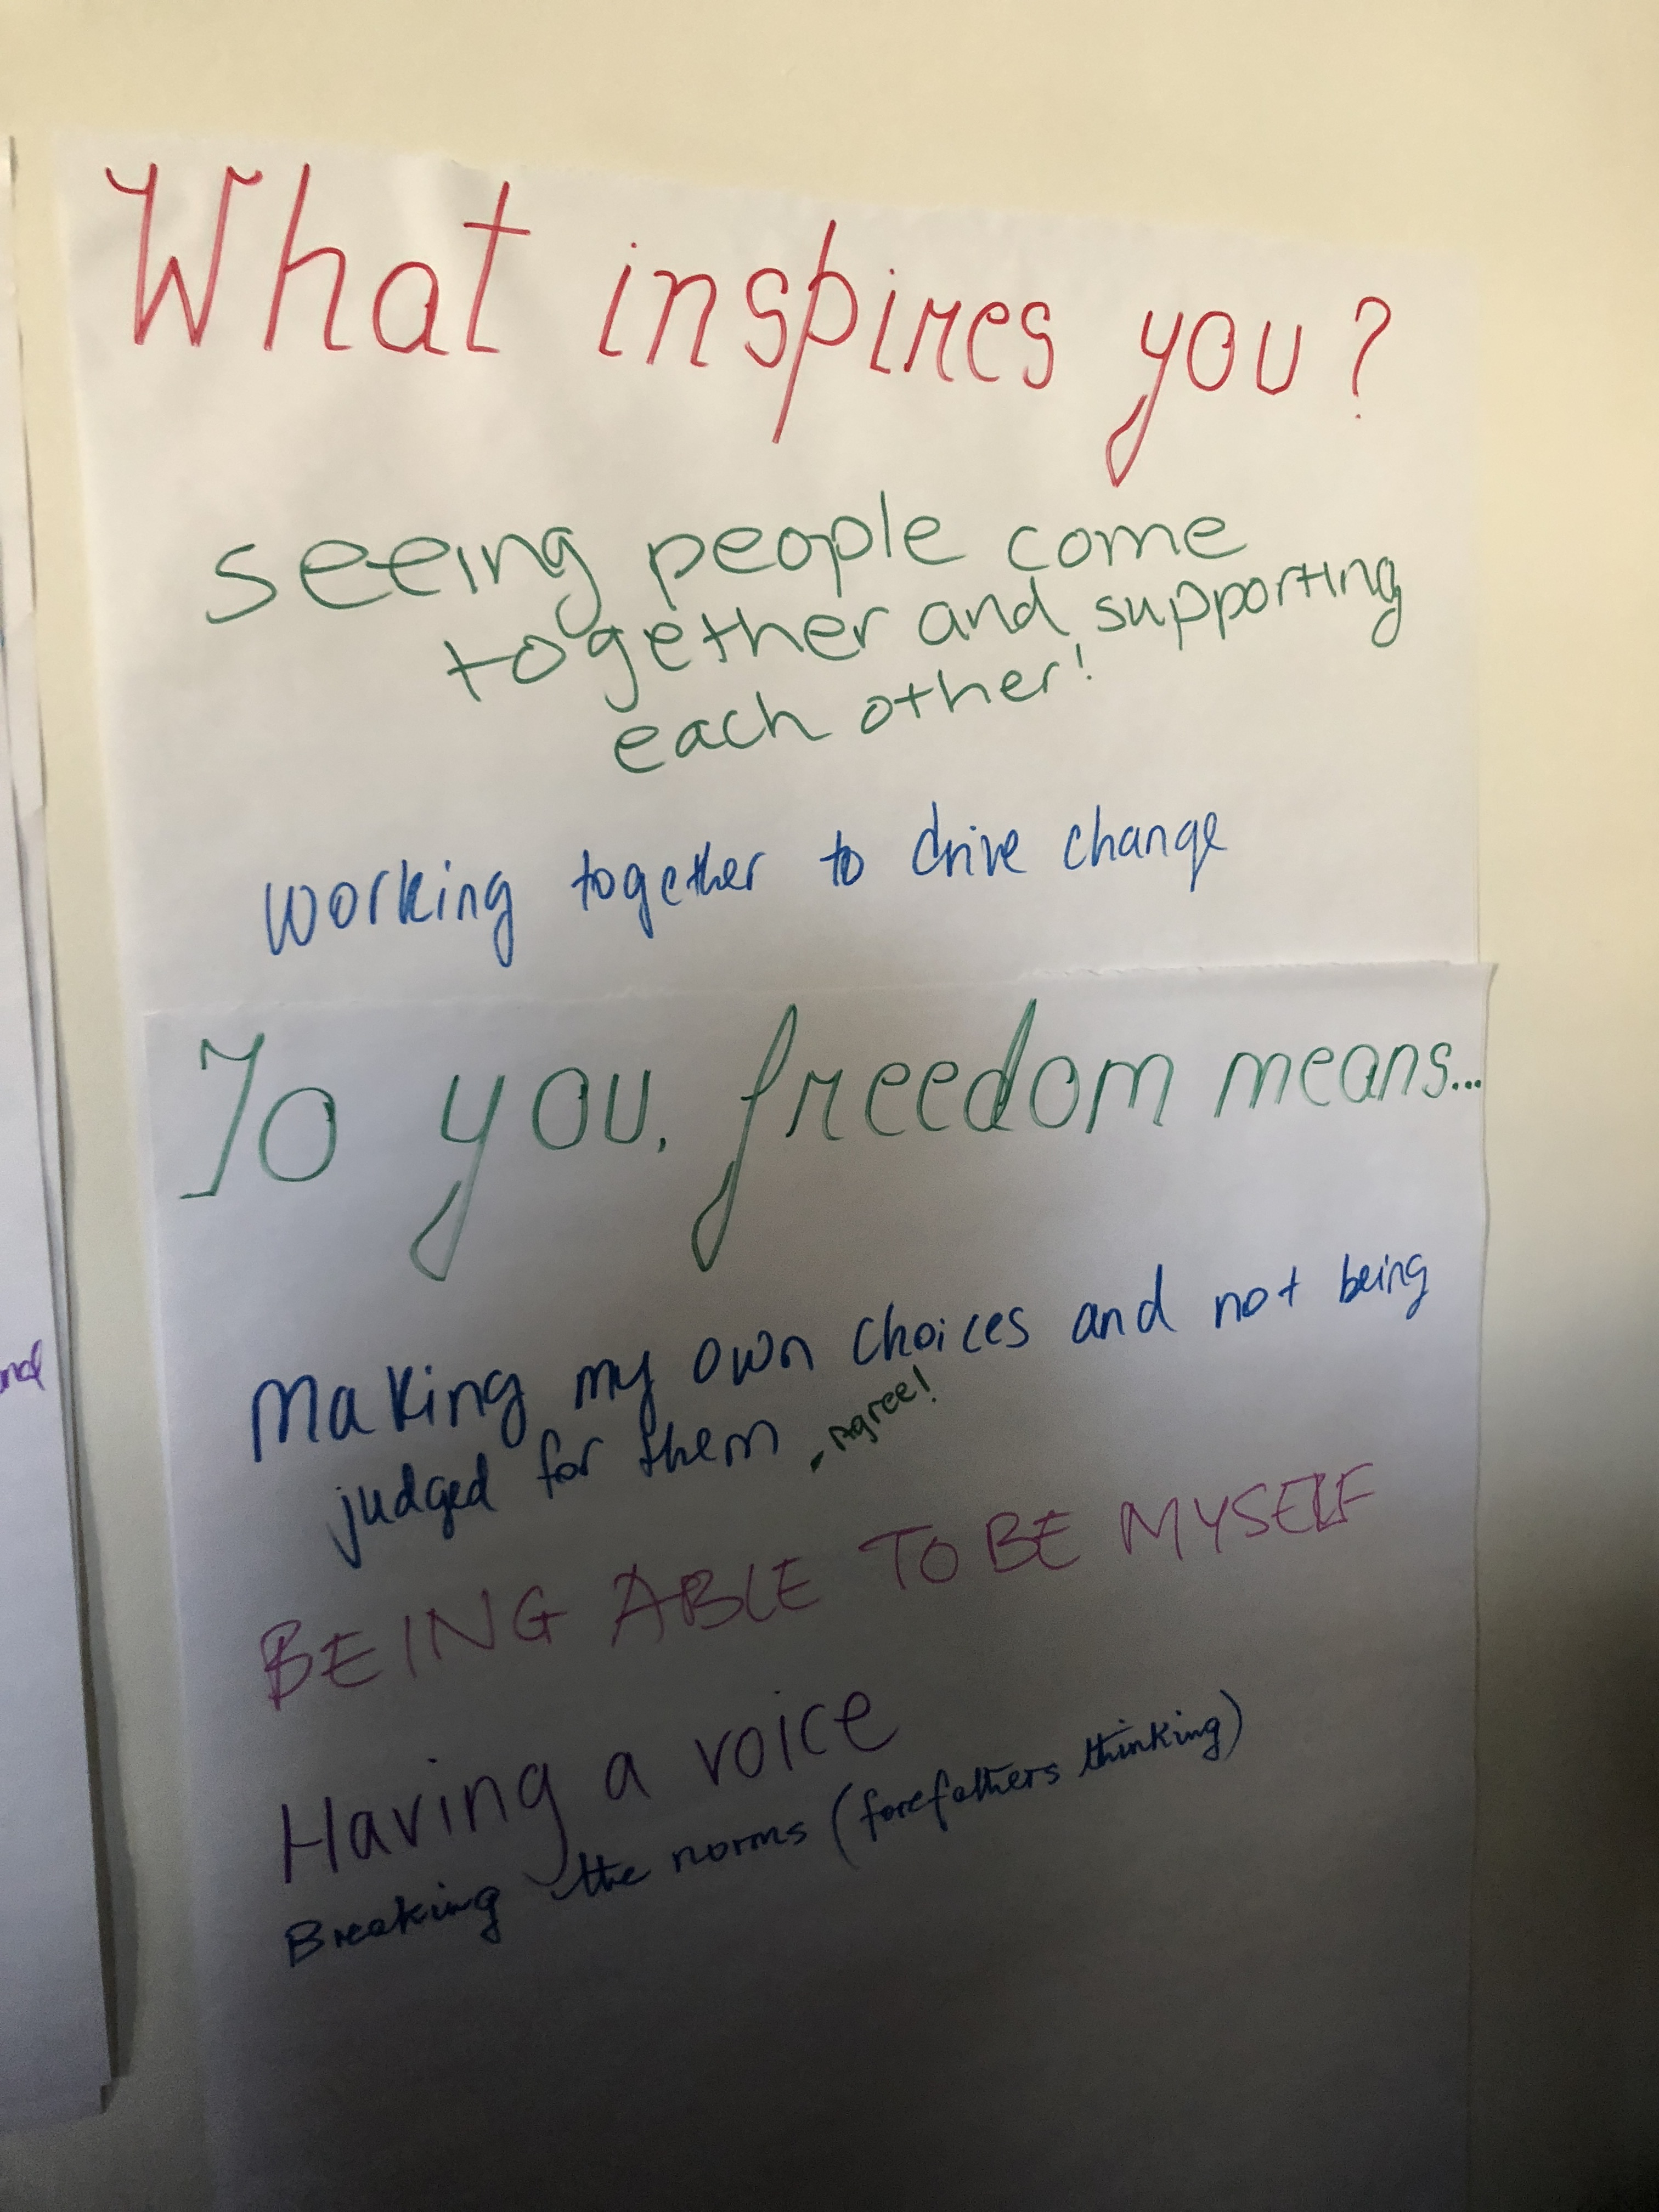 What inspires you?
seeing people come
together and supporting
each other!
working together to drive change
To you, freedom means...
Making my own choices and not being
judged for them, Agree!
BEING ABLE TO BE MYSELF
Having a voice
Breaking the norms (forefathers thinking)